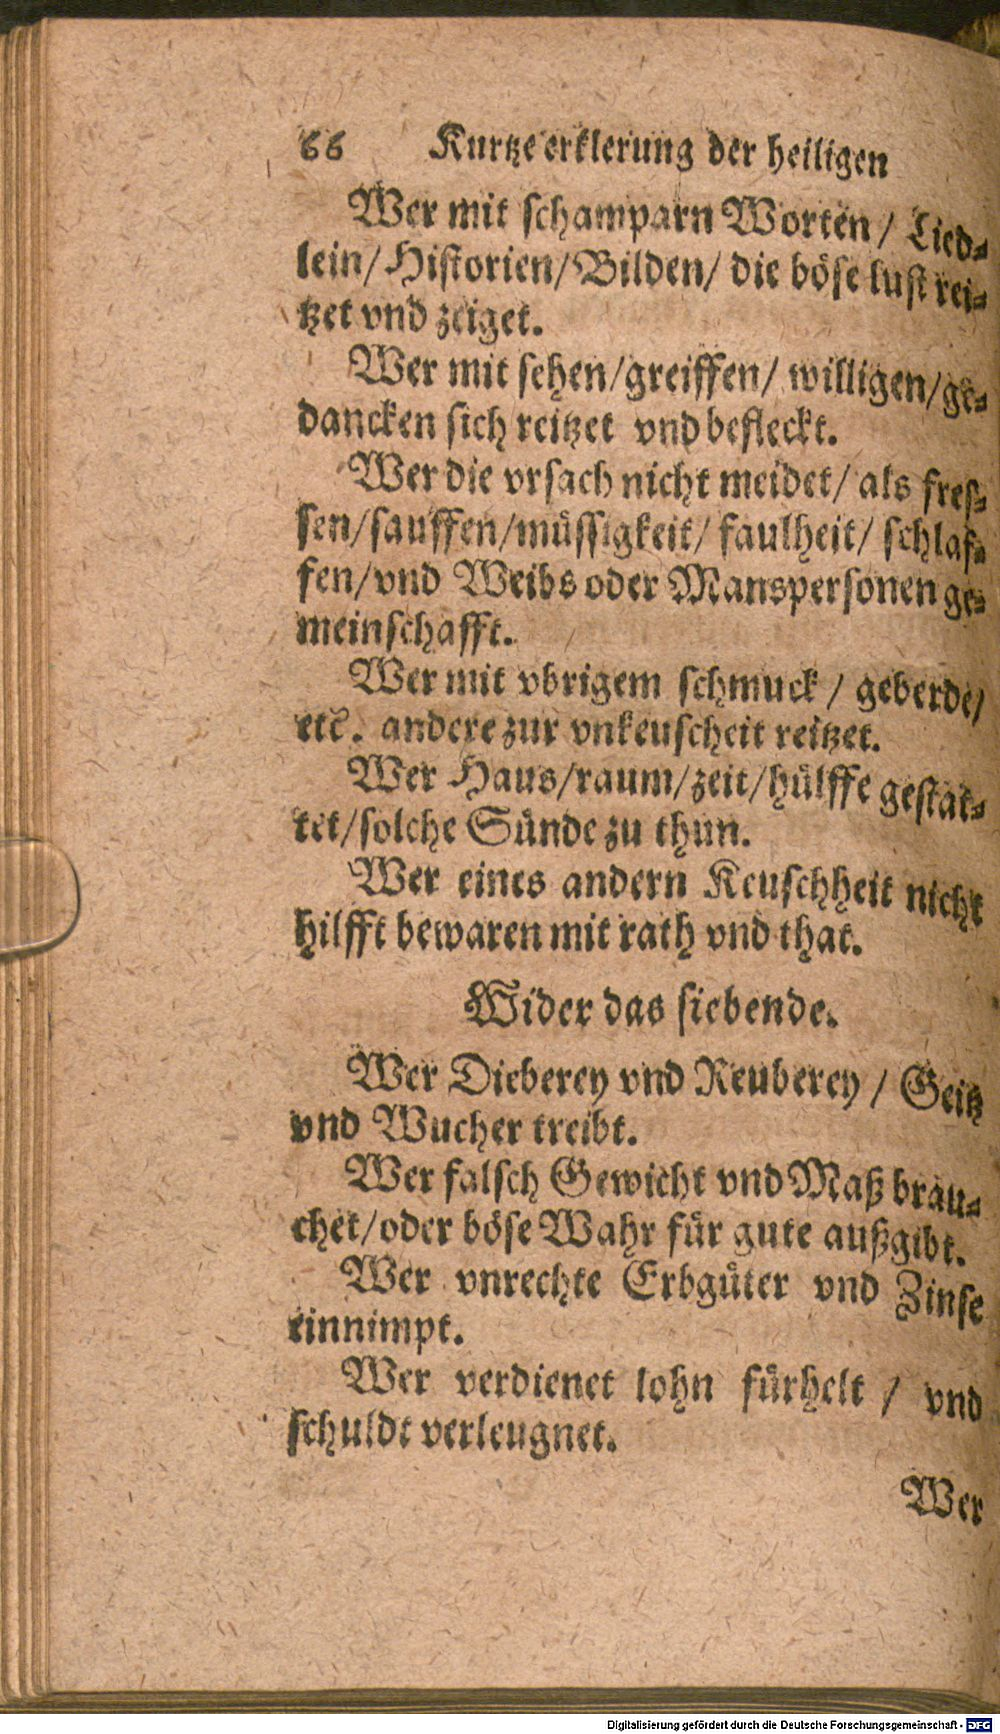 66 Kurtze erklerung der heiligen
Wer mit schamparn Worten / Lied-
lein/Historien/Bilden/ die böse lust rei-
tzet vnd zeiget.
Wer mit sehen/greiffen/ willigen/ge-
dancken sich reitzet vnd befleckt.
Wer die vrsach nicht meidet/ als fres-
sen/sauffen/müssigkeit/ faulheit/ schlaf-
fen/vnd Weibs oder Manspersonen ge-
meinschafft.
Wer mit vbrigem schmuck / geberde/
etc. andere zur vnkeuscheit reitzet.
Wer Haus/raum/zeit/hülffe gestat-
tet/solche Sünde zu thun.
Wer eines andern Keuschheit nicht
hilfft bewaren mit rath vnd that.
Wider das siebende.
Wer Dieberey vnd Reuberey / Geitz
vnd Wucher treibt.
Wer falsch Gewicht vnd Maß brau-
chet/oder böse Wahr für gute außgibt.
Wer vnrechte Erbgüter vnd Zinse
einnimpt.
Wer verdienet lohn fürhelt / vnd
schuldt verleugnet.
Wer
Digitalisierung gefördert durch die Deutsche Forschungsgemeinschaft - DFG